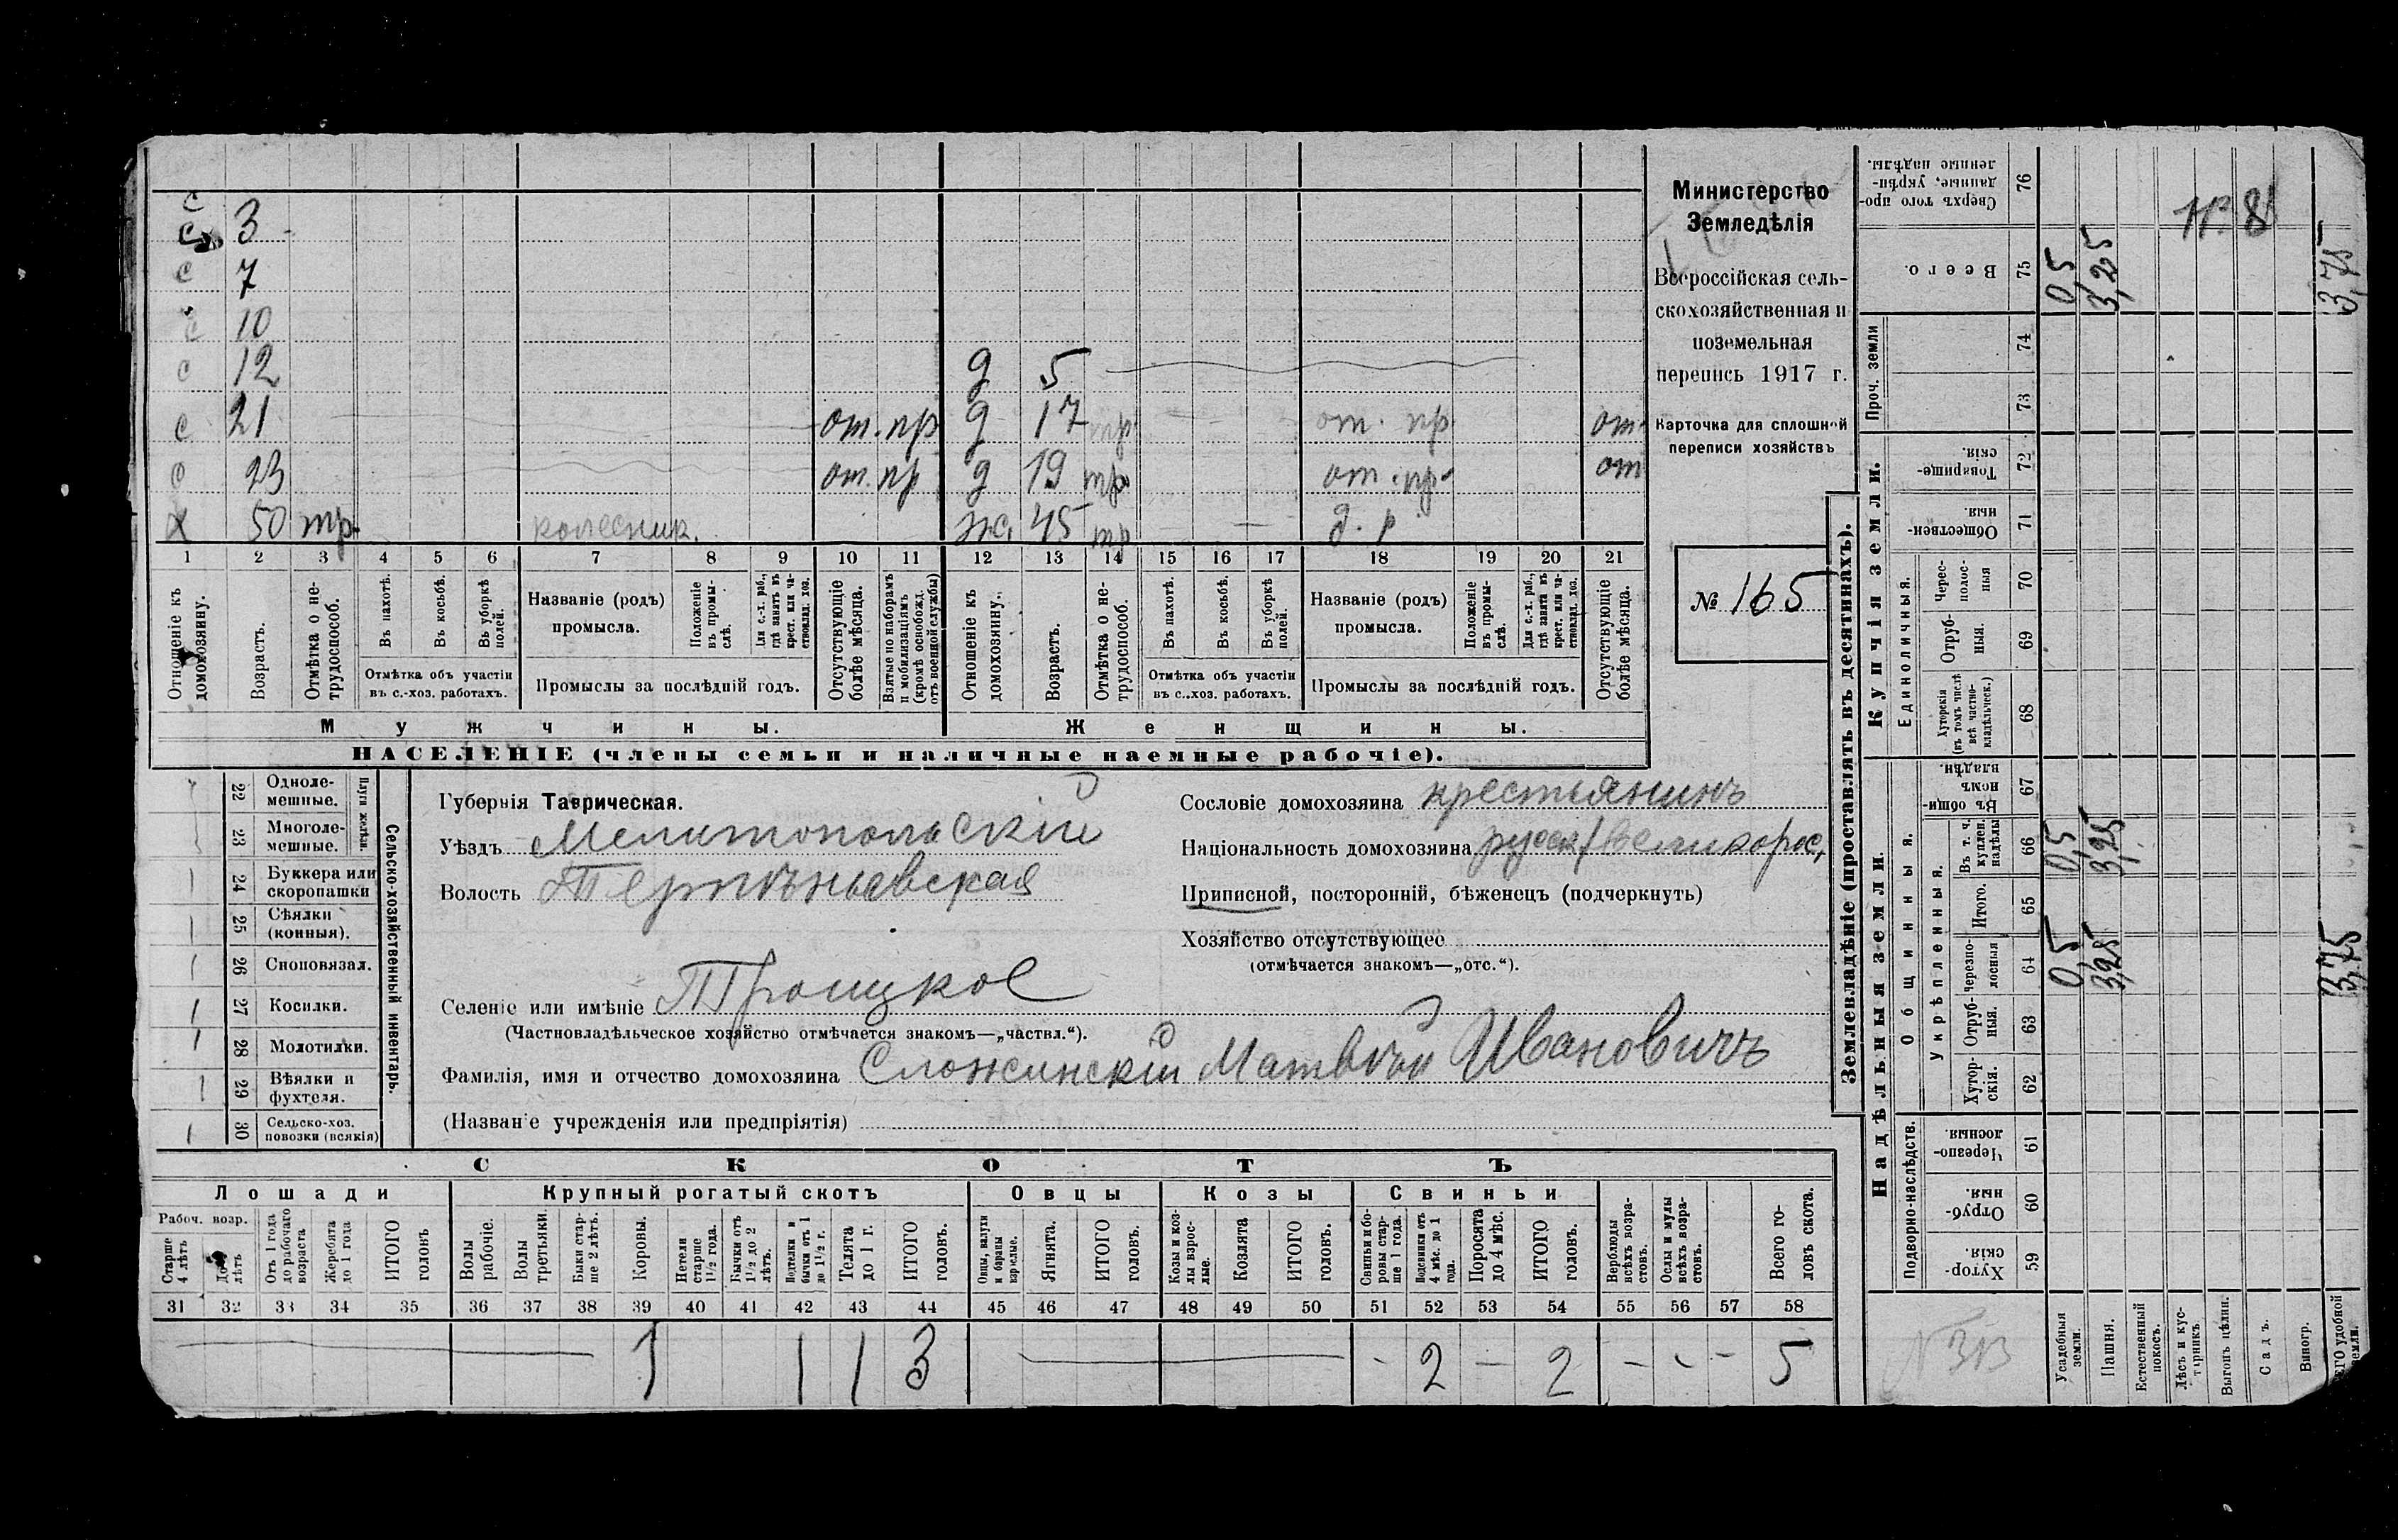 с
с 3
с 7
с 10
с 12 д 5
с 21 от. пр д 17 тр. от. пр. от.
с 23 от. пр д 19 тр от. пр. от
х 50 тр. колесник. ж. 45 тр д. р
1 2 3 4 5 6 7 8 9 10 11 12 13 14 15 16 17 18 19 20 21
Отношеніе къ домохозяину.
Возрастъ.
Отмѣтка о не-
трудоспособ.
Въ пахотѣ.
Въ косьбѣ.
Въ уборкѣ полей.
Отмѣтка объ участіи
въ с.-хоз. работахъ.
Названіе (родъ)
промысла.
Положеніе въ промы-
слѣ.
Для с.-х. раб., гдѣ занятъ въ крест. или ча-
ствовлад. хоз.
Промыслы за послѣдній годъ.
Отсутствующіе болѣе мѣсяца.
Взятые по наборамъ и мобилизаціямъ (кромѣ освобожд. отъ военной службы)
Отношеніе къ домохозяину.
Возрастъ.
Отмѣтка о не-
трудоспособ.
Въ пахотѣ.
Въ косьбѣ.
Въ уборкѣ полей.
Отмѣтка объ участіи
въ с..хоз. работахъ.
Названіе (родъ)
промысла.
Положеніе въ промы-
слѣ.
Для с.-х. раб., гдѣ занята въ крест. или ча-
ствовлад. хоз.
Промыслы за послѣдній годъ.
Отсутствующіе болѣе мѣсяца.
Мужчины. Женщины.
НАСЕЛЕНІЕ (члены семьи и наличные наемные рабочіе).
Министерство
Земледѣлія
Всероссійская сель-
скохозяйственная и
поземельная
перепись 1917 г.
Карточка для сплошной
переписи хозяйствъ
№ 165
Сельско-хозяйственный инвентарь.
Плуги желѣзн.
22 Одноле-
мешные.
23 Многоле-
мешные.
24 Буккера или
скоропашки
25 Сѣялки
(конныя).
26 Сноповязал.
27 Косилки.
28 Молотилки.
29 Вѣялки и
фухтеля.
30 Сельско-хоз.
повозки (всякія)
Губернія Таврическая.
Уѣздъ Мелитопольскій
Волость Терпѣньевская
Селеніе или имѣніе Троицкое
(Частновладѣльческое хозяйство отмѣчается знакомъ—„частвл.“).
Фамилія, имя и отчество домохозяина Сложинскій Матвѣй Ивановичъ
(Названіе учрежденія или предпріятія)
Сословіе домохозяина крестьянинъ
Національность домохозяина русск/великорос.
Приписной, посторонній, бѣженецъ (подчеркнуть)
Хозяйство отсутствующее
(отмѣчается знакомъ—„отс.“).
СКОТЪ
Лошади Крупный рогатый скотъ Овцы Козы Свиньи
Рабоч. возр.
Старше 4 лѣтъ
До лѣтъ
Отъ 1 года до рабочаго возраста
Жеребята до 1 года
ИТОГО головъ
Волы рабочіе.
Волы третьяки.
Быки стар-
ше 2 лѣтъ.
Коровы.
Нетели старше 1 1/2 года.
Бычки отъ 1 1/2 до 2 лѣтъ.
Подтелки и бычки отъ 1 до 1 1/2 г.
Телята до 1 г.
ИТОГО головъ.
Овцы, валухи и бараны взрослые.
Ягнята.
ИТОГО головъ.
Козы и коз-
лы взрос-
лые.
Козлята
ИТОГО головъ.
Свиньи и бо-
ровы стар-
ше 1 года.
Подсвинки отъ 4 мѣс. до 1 года.
Поросята до 4 мѣс.
ИТОГО головъ.
Верблюды всѣхъ возра-
стовъ.
Ослы и мулы всѣхъ возра-
стовъ.
Всего го-
ловъ скота.
31 32 33 34 35 36 37 38 39 40 41 42 43 44 45 46 47 48 49 50 51 52 53 54 55 56 57 58
1 1 1 3 - 2 - 2 - - - 5
Землевладѣніе (проставлять въ десятинахъ).
Надѣльныя земли
Купчія земли.
Проч. земли
Подворно-наслѣдств.
Общинныя.
Укрѣпленныя.
Единоличныя.
Хутор-
скія. 59
Отруб-
ныя. 60
Черезпо-
лосныя. 61
Хутор-
скія. 62
Отруб-
ныя. 63
Черезпо-
лосныя 64
Итого. 65
Въ т. ч. куплен. надѣлы 66
Въ общин-
номъ владѣн. 67
Хуторскія (въ томъ числѣ всѣ частно-
владѣльческ.) 68
Отруб-
ныя. 69
Черес-
полос-
ныя 70
Обществен-
ныя. 71
Товарище-
скія. 72
73
74
Всего. 75
Сверхъ того про-
данные, укрѣп-
ленные надѣлы. 76
Усадебныя земли. 0,5 0,5 0,5
Пашня. 3,25 3,25 3,25
Естественный покосъ.
Лѣсъ и кус-
тарникъ.
Выгонъ цѣлин.
Садъ.
Виногр.
ЕГО удобной земли. 3,75 3,75